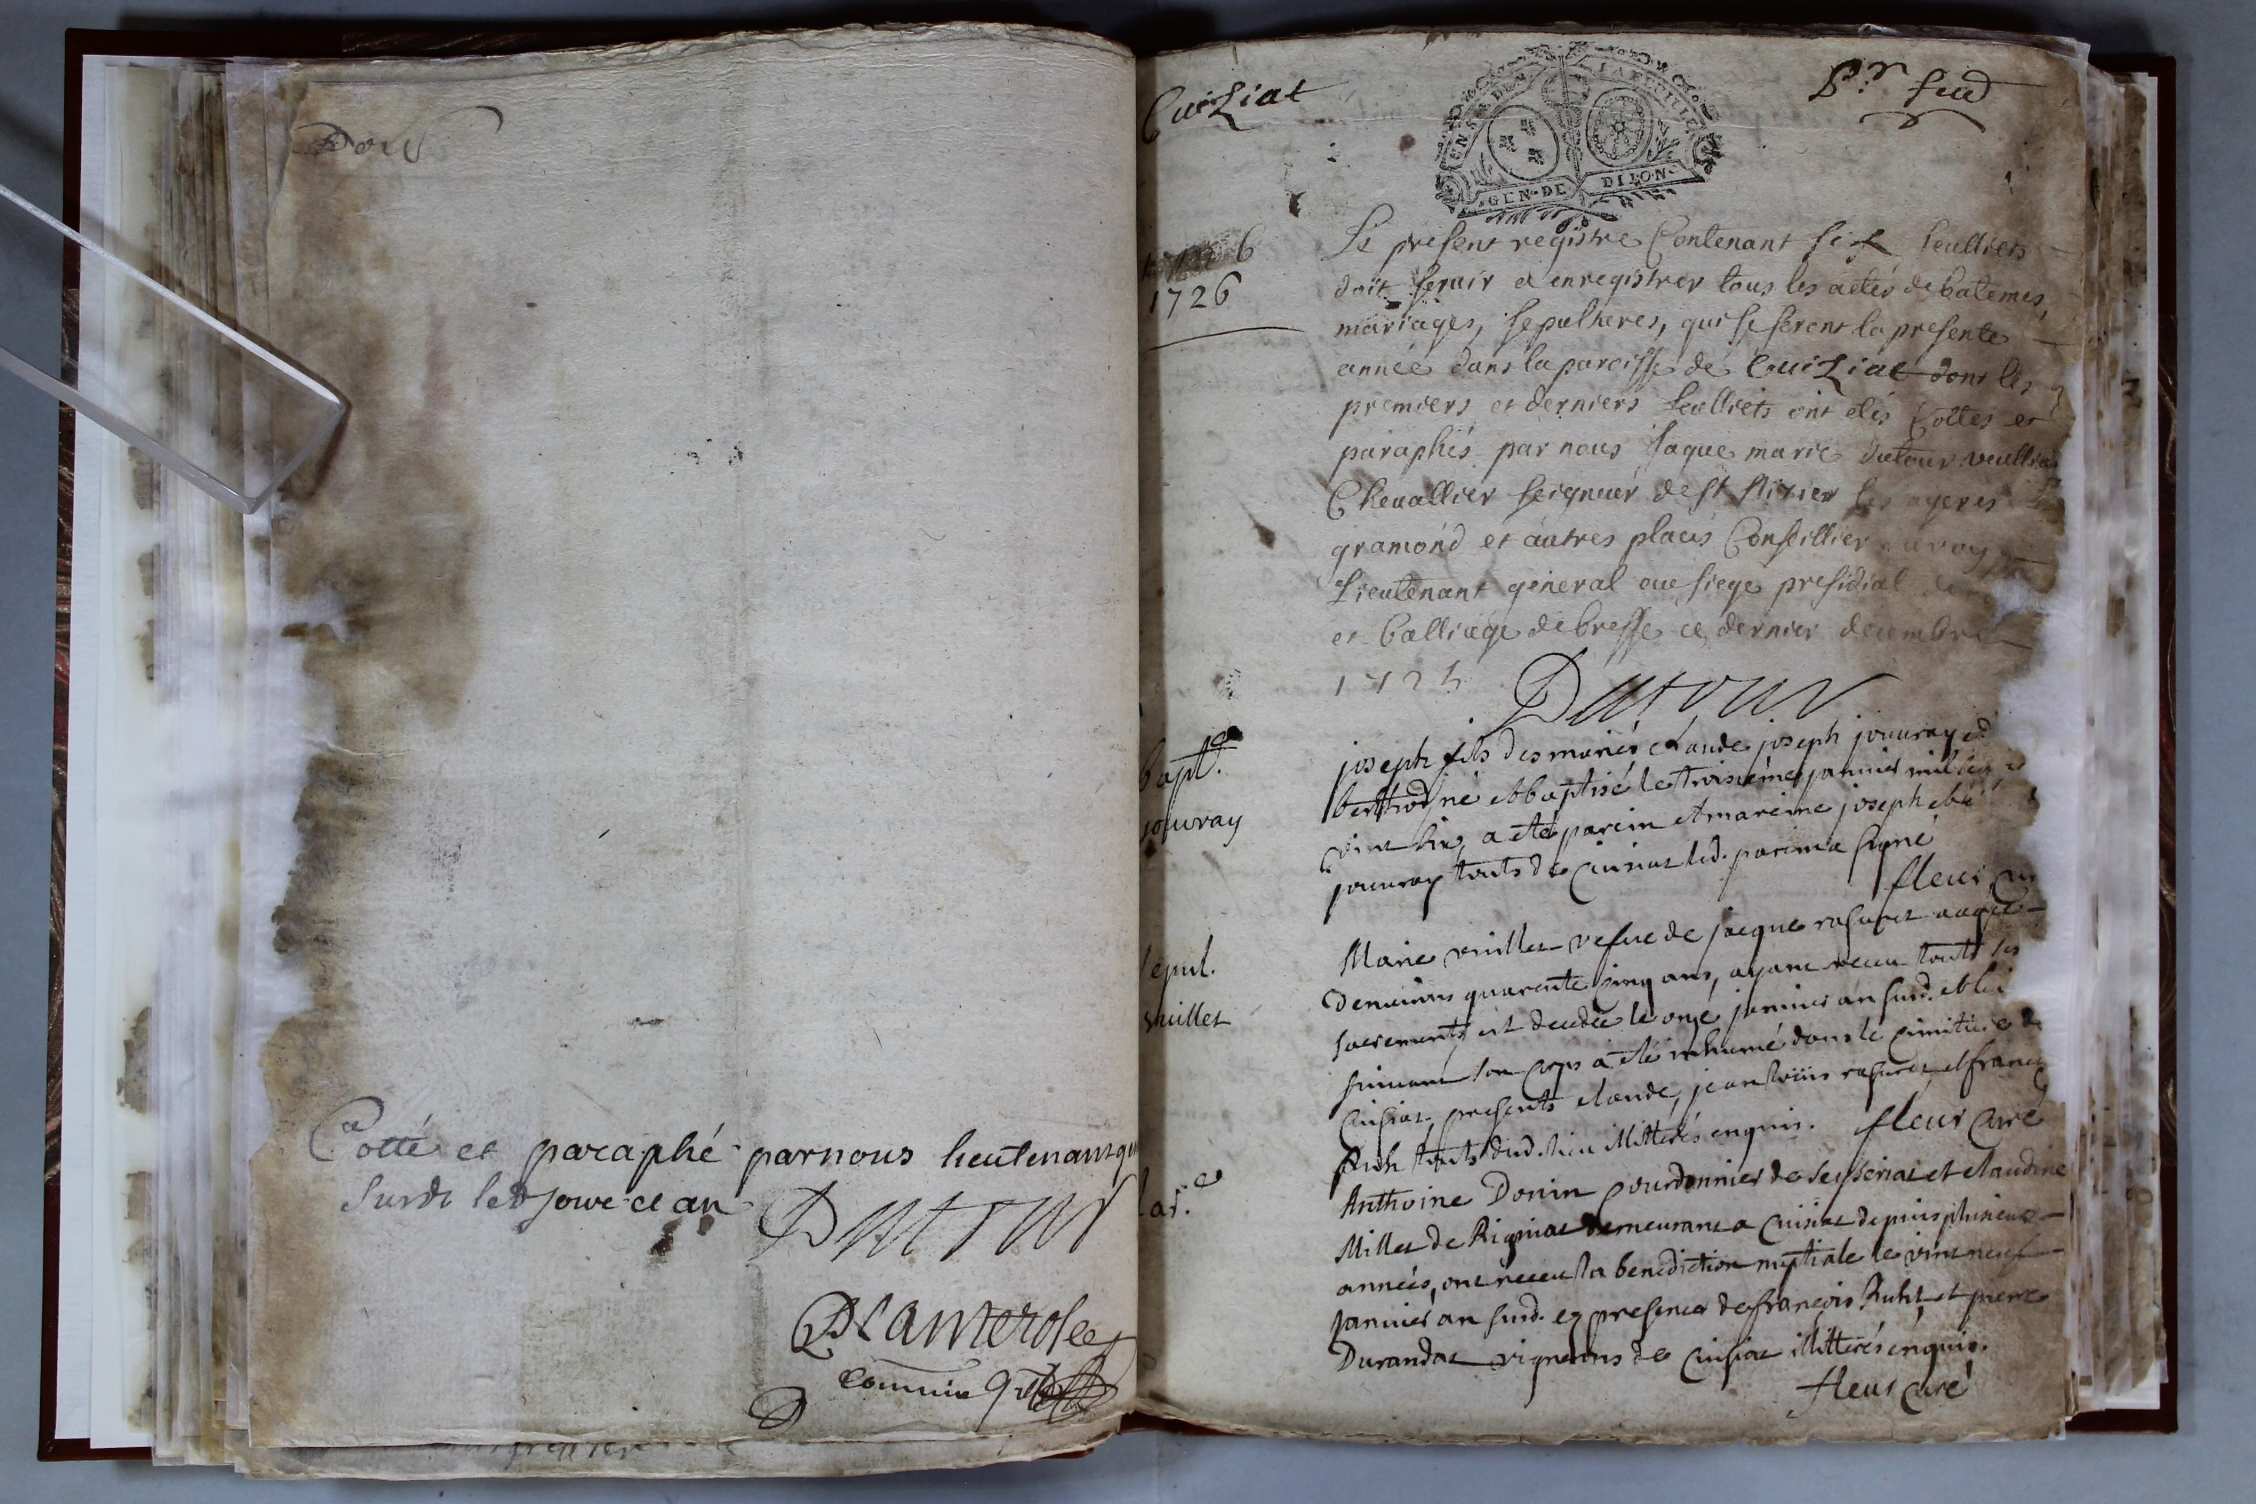 Cotté et paraphé par nous lieutenant
surd. led jour ce an
Dutour
commis
Cuiziat
GEN·DE DIION·
1726
Le present registre Contenant six feulliets
doit servir a enregistrer tous les actes de batemes,
mariages, sepultures, qui se feront la presente
année dans la paroisse de Cuiziat dont les
premiers et derniers feulliets ont etés Cottes et
paraphés par nous Jaque marie dutour
Chevallier seigneur de st
gramond et autres places Conseillier du roy
Lieutenant general au siege presidial
et balliage de bresse ce dernier decembre
1725
Dutour
bapt.
jouvray
joseph fils des mariés claude joseph jouvray
né et baptisé le troisieme janvier mil
vint six, a eté parein et mareine joseph
jouvray touts de Cuisiat led. parein a signé
fleur
sepul.
vuillet
Marie vuillet vefue de jacque rafuret aagée
denuiron quarente cinq ans, ayant receu touts ses
sacrements est decedée le onze janvier an susd. et le
suiuant son corps a eté inhumé dans le cimitiere de
Cuisiat, presents claude, jean louis rafuret et
touts dud. lieu illitterés enquis. fleur curé
Anthoine Donin Courdonnier de et claudine
Millet de Rigniat demeurant a Cuisiat depuis plusieurs
années, ont receu la benediction nuptiale le vint neuf
janvier an susd. en presence de françois et pierre
Durandat vignerons de Cuisiat illitterés enquis.
fleur curé